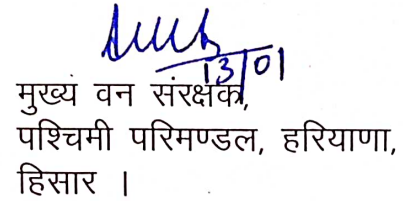 13/01
मुख्य वन संरक्षक,
पश्चिमी परिमण्डल, हरियाणा,
हिसार ।